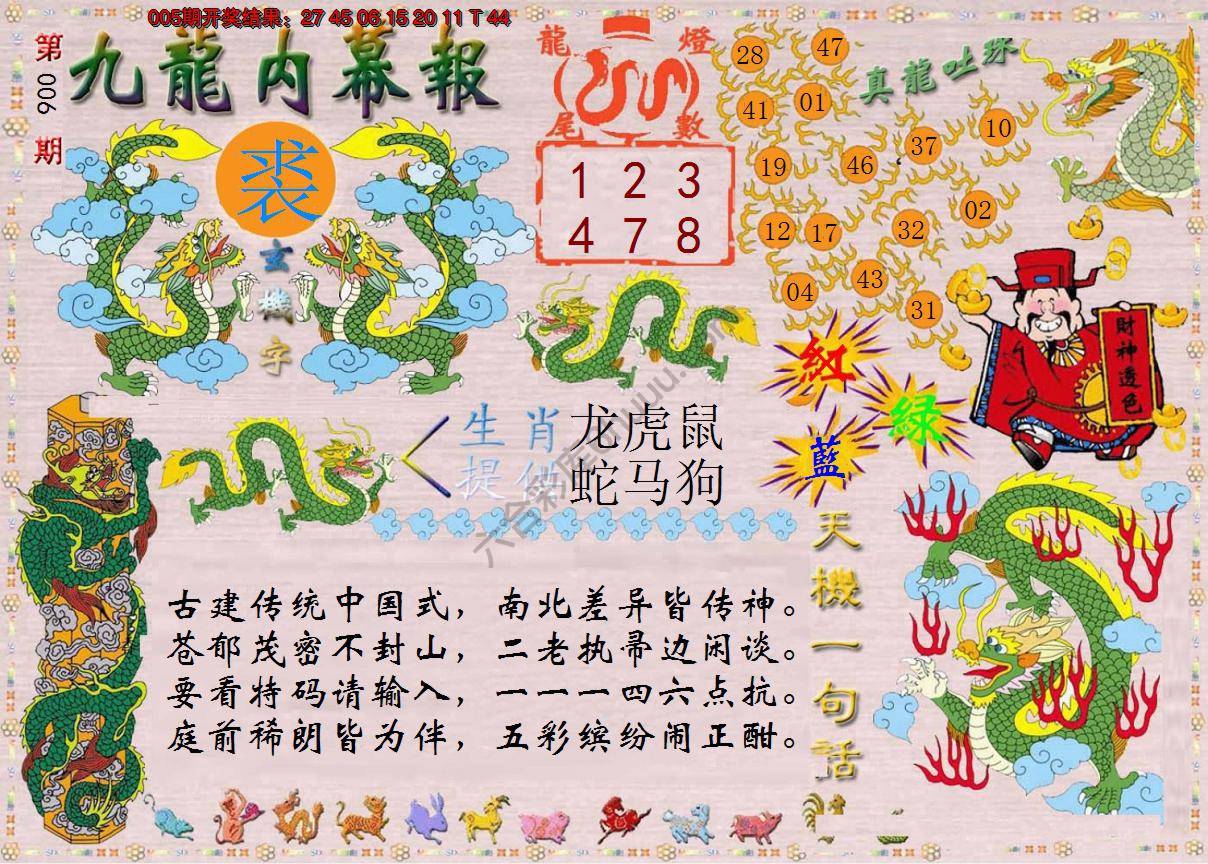 005期开奖结果：27 45 06 15 20 11 T 44
第006期
九龍内幕報
裘
玄機字
龍燈
尾數
1 2 3
4 7 8
真龍吐珠
28 47
41 01
19 46 37 10
12 17 32 02
04 43 31
財神透色
紅
綠
藍
生肖 龙虎鼠
提供 蛇马狗
天機一句話
古建传统中国式，南北差异皆传神。
苍郁茂密不封山，二老执帚边闲谈。
要看特码请输入，一一一四六点抗。
庭前稀朗皆为伴，五彩缤纷闹正酣。